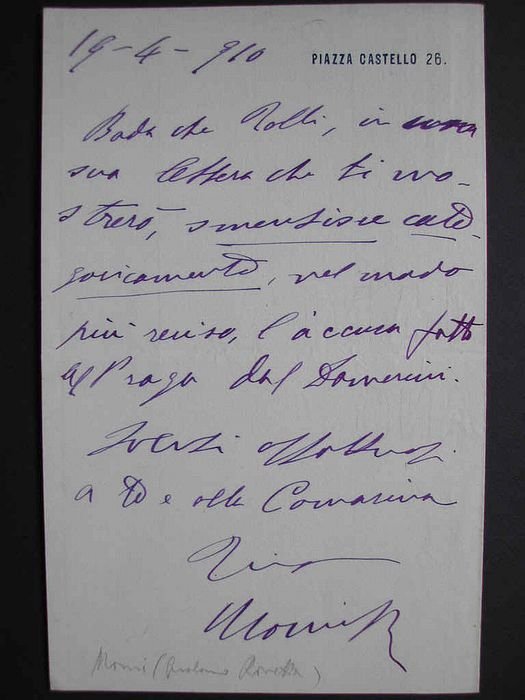 19-4-910
PIAZZA CASTELLO 26.
Bada che Polli, in una
sua lettera che ti mo-
strerò, smentisce cate-
goricamente, nel modo
più reciso, l'accusa fatta
al Praga dal Damerini.
Saluti affettuosi
a te e alla Comarina
Momi R
Momi (Gerolamo Rovetta)